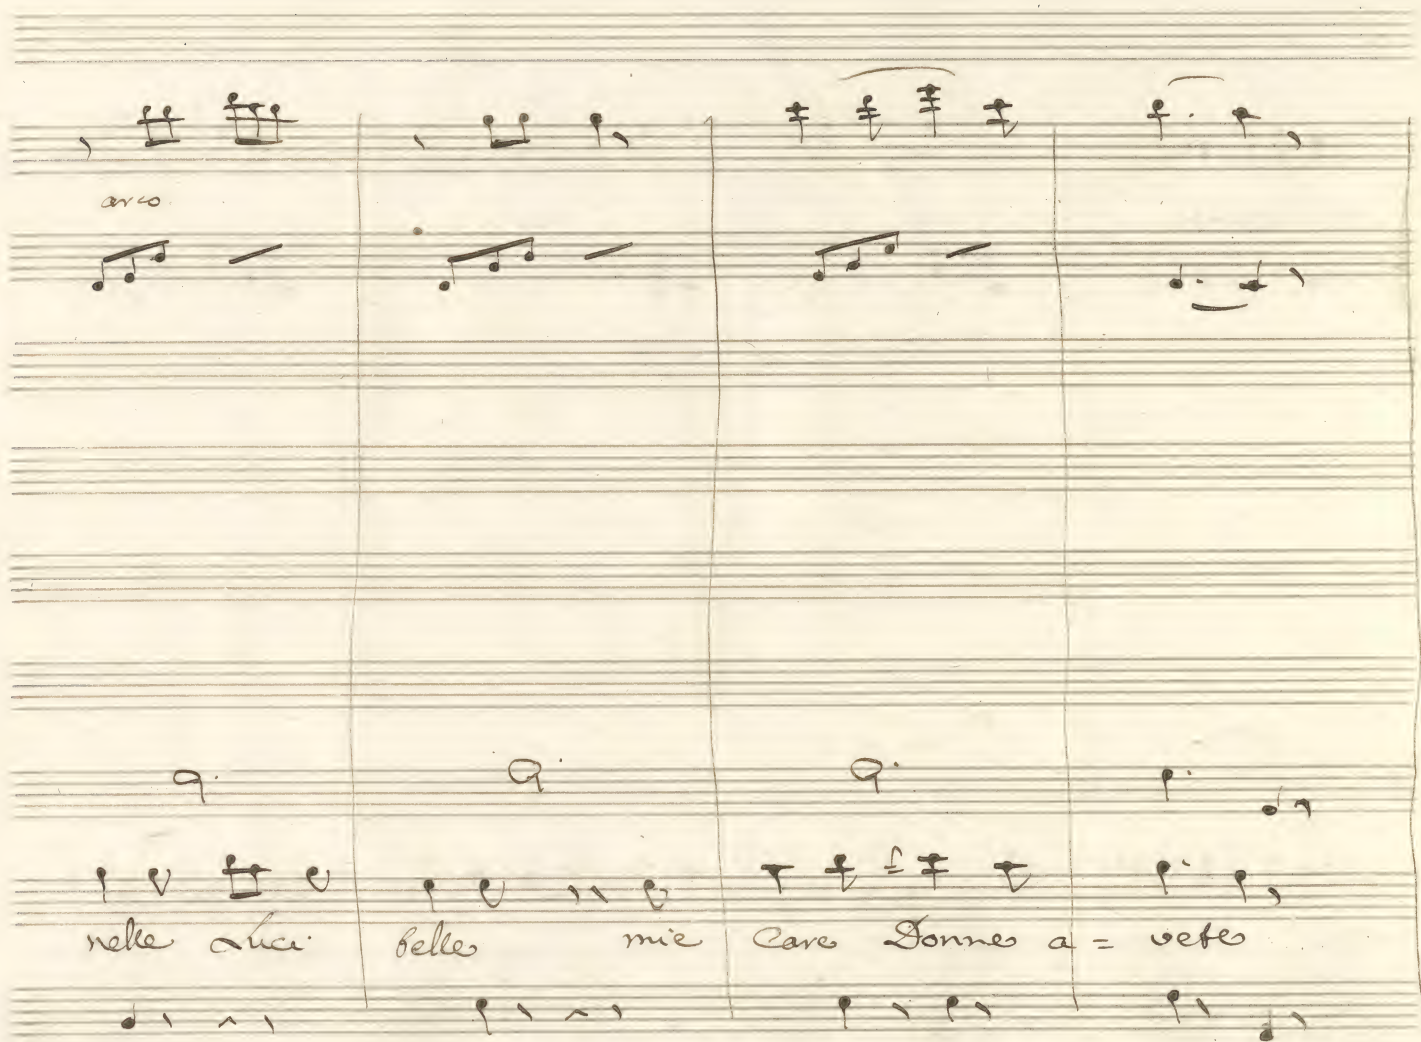 arco
nelle Luci belle mie Care Donne a = vete